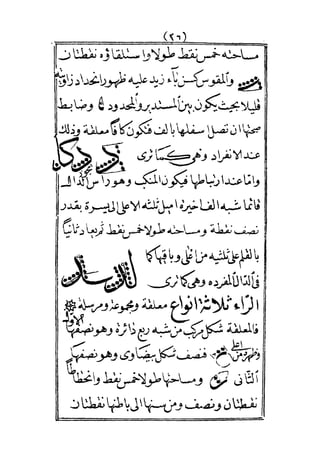 (٢٦)
مساحته خمس نقط طولا واستلقاؤه نقطتان
والمقوس كسن باء زيد عليه ظهور انحداد زاوية
قليلا بحيث يكون بين المستدير والمحدود وضابط
صحتها ان تصل اسفلها بالف فتكون كافا معلقة وذلك
عند الانفراد وهى كما ترى
واما عند ارتباطها فيكون المنكب وهو راس كذا
قائما شبه الف اخيره اميل ثلثه الاعلى الى يسرة بقدر
نصف نقطة ومساحته طولا خمس نقط ثم يعاد ثانيا
بالقلم على ثلثيه من اعلى وباقيها كما
فى الدال المفردة وهى كما ترى
الراء ثلاثة انواع معلقة ومجموعة ومرسلة
فالمعلقة شكل مركب من شبه ربع دائرة وهو نصفها
الاول
فنصف شكل بيضاوى وهو نصفها
الثانى ومساحتها طولا خمس نقط وانحطاطا
نقطتان ونصف ومن سنها الى باطنها نقطتان